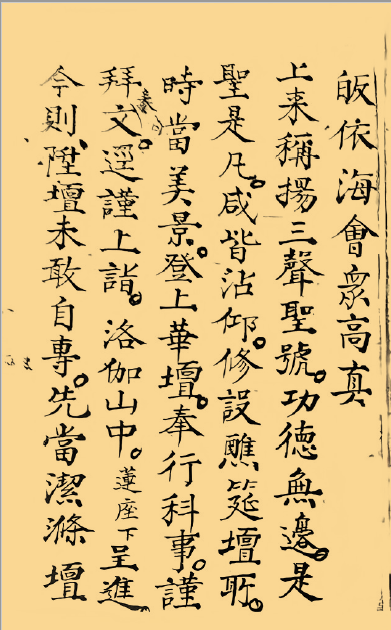 皈依海會衆高真
上来稱揚三聲聖號。功德無邊。是
聖是凡。咸皆沾仰。修設醮筵壇所。
時當美景。登上華壇。奉行科事。謹
拜文。逕謹上詣。洛伽山中。蓮座下呈進
今則陞壇未敢自專。先當潔滌壇